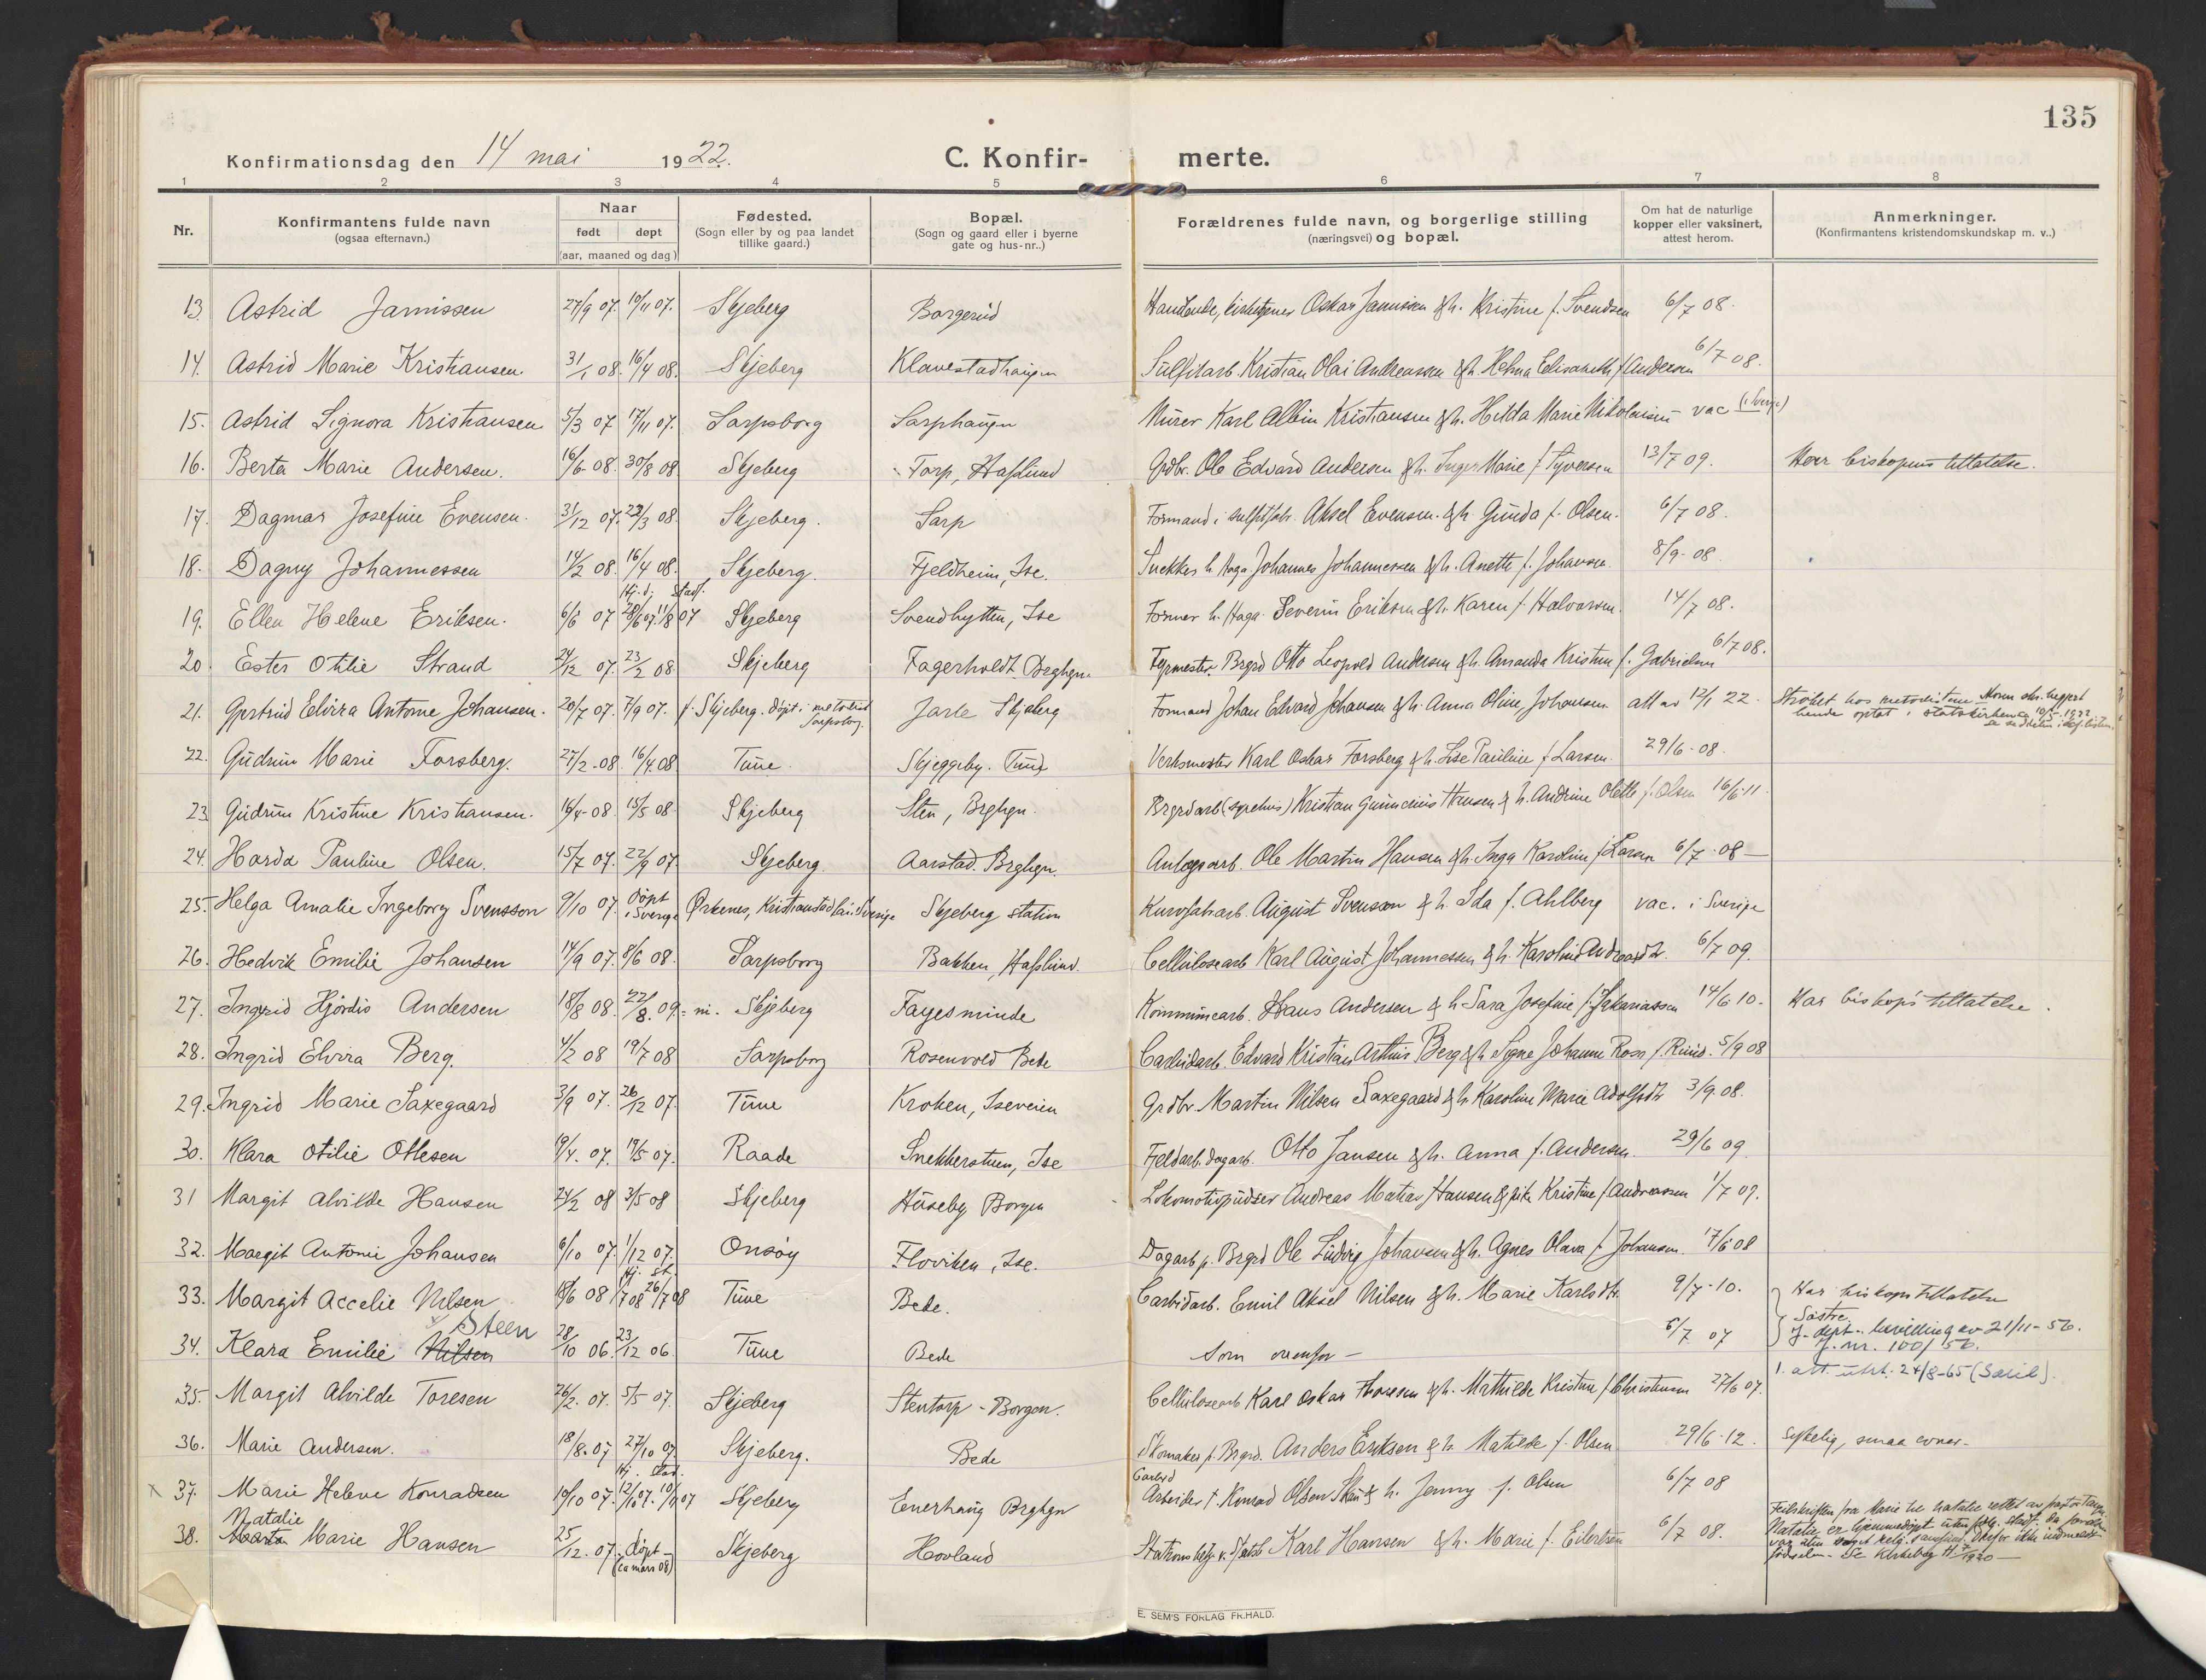 135
Konfirmationsdag den 14 mai 1922. C. Konfir- merte.
1 2 3 4 5 6 7 8
Nr.
Konfirmantens fulde navn
(ogsaa efternavn.)
Naar
født døpt
(aar, maaned og dag)
Fødested.
(Sogn eller by og paa landet
tillike gaard.)
Bopæl.
(Sogn og gaard eller i byerne
gate og hus-nr..)
Forældrenes fulde navn, og borgerlige stilling
(næringsvei) og bopæl.
Om hat de naturlige
kopper eller vaksinert,
attest herom.
Anmerkninger.
(Konfirmantens kristendomskundskap m. v..)
13. Astrid Jamissen 27/9 07. 10/11 07. Skjeberg Borgerud Oskar Jamissen & h. Kristine f. Svendsen 6/7 08.
14. Astrid Marie Kristiansen. 31/1 08. 16/4 08. Skjeberg Klavestadhaugen Sulfitarb. Kristian Olai Andreassen & h. Helma Elisabeth f. Andersen 6/7 08.
15. Astrid Signora Kristiansen 5/3 07 17/11 07. Sarpsborg Sarphaugen Murer Karl Albin Kristiansen & h. Hilda Marie Nikolaisen vac (i Sverige)
16. Berta Marie Andersen. 16/6 08. 30/8 08 Skjeberg Torp, Hafslund Grdbr. Ole Edvard Andersen & h. Inger Marie f. Syversen 13/7 09. Har biskopens tillatelse.
17. Dagmar Josefine Evensen. 31/12 07. 22/3 08. Skjeberg. Sarp Formand i sulfitfabr. Aksel Evensen & h. Gunda f. Olsen. 6/7 08.
18. Dagny Johannessen 14/2 08. 16/4 08. Skjeberg. Fjeldheim, Ise. Snekker h. Haga Johannes Johannessen & h. Anette f. Johansen. 8/9 - 08.
Hj.d. stadf.
19. Ellen Helene Eriksen. 6/6 07 28/6 07. 11/8 07 Skjeberg Svendhytten, Ise Former h. Haga Severin Eriksen & h. Karen f. Halvorsen. 14/7 08.
20. Ester Otilie Strand 24/12 07. 23/2 08 Skjeberg Fagerholdt Brghgn. Fyrmester. Brgrd Otto Leopold Andersen & h. Amanda Kristine f. Gabrielsen 6/7 08.
21. Gertrud Elvira Antonie Johansen. 20/7 07. 7/9 07. f. Skjeberg. døpt i metodist Sarpsborg. Jarle Skjeberg Formand Johan Edvard Johansen & h. Anna Oline Johansen att av 12/1 22. Strøket hos metodistene
22. Gudrun Marie Forsberg. 27/2 - 08. 16/4 08 Tune. Skjeggeby. Tune Verksmester Karl Oskar Forsberg & h. Lise Pauline f. Larsen. 29/6 - 08.
23. Gudrun Kristine Kristiansen. 16/4 - 08 15/5 08 Skjeberg Sten, Brghgn. Brgrdarb. Kristian Hansen & h. Andrine Olette f. Olsen 16/6 - 11.
24. Harda Pauline Olsen. 15/7 07. 22/9 07. Skjeberg. Aarstad. Brghgn. Anlegsarb. Ole Martin Hansen & h. Inga Karoline f. Larsen 6/7 - 08 —
25. Helga Amalie Ingeborg Svensson 9/10 07. døpt i Sverige Ørkenes, Kristianstad län Sverige Skjeberg station Kurvfabrarb. August Svensson & h. Ida f. Ahlberg vac. i Sverige
26. Hedvik Emilie Johansen 14/9 07. 8/6 08. Sarpsborg Bakken, Hafslund. Cellulosearb Karl August Johannessen & h. Karoline 6/7 09.
27. Ingrid Hjørdis Andersen 18/8 08. 22/8. 09. Skjeberg Fayesminde Kommunearb. Hans Andersen & h. Sara Josefine f. Zakariassen 14/6 10. Har biskops tillatelse.
28. Ingrid Elvira Berg. 4/2 08 19/7 08 Sarpsborg Rosenvold Bede Carbidarb. Edvard Kristian Arthur Berg & h. Signe Johanne Rosa f. Ruud. 5/9 08
29. Ingrid Marie Saxegaard 3/9 07. 26/12 07. Tune Kroken, Iseveien Grdbr. Martin Nilsen Saxegaard & h. Karoline Marie Adolfsdt. 3/9. 08.
30. Klara Otilie Ottesen 19/4. 07. 19/5 07. Raade Snekkerstuen, Ise Fjeldarb. dagarb. Otto Jansen & h. Anna f. Andersen. 29/6 09
31 Margit Alvilde Hansen 24/2 08 3/5 08 Skjeberg Huseby Borgen Lokomotivpudser Andreas Matias Hansen & pike Kristine f. Andreassen 1/7 09.
32. Margit Antonie Johansen 6/10 07. 1/12 07. Onsøy Floviken, Ise. Dagarb p. Brgrd Ole Ludvig Johansen & h. Agnes Olava f. Johansen. 17/6 08
Hj. st.
33. Margit Accelie Nilsen 18/6 08 26/7 08 Tune Bede. Carbidarb. Emil Aksel Nilsen & h. Marie Karlsdt. 9/7 - 10. Har biskops tillatelse
Søstre
Steen
34. Klara Emilie Nilsen 28/10 06. 23/12 06. Tune Bede Som ovenfor — 6/7 07 J. dept. bevilling av 21/11 - 56.
J. nr. 100/56.
1. att. utst. 24/8-65
35. Margit Alvilde Toresen 26/2. 07. 5/5 07. Skjeberg Stentorp - Borgen. Cellulosearb Karl Oskar Thoresen & h. Mathilde Kristine f. Christensen 27/6 07.
36. Marie Andersen. 18/8. 07 27/10 07 Skjeberg. Bede Skomaker p. Brgrd. Anders Eriksen & h. Matilde f. Olsen 29/6 - 12. Sykelig, smaa evner.
Hj. stad.
x 37. Marie Helene Konradsen 10/10 07. 12/10 07. 10/11 07 Skjeberg Enerhaug Brghgn Arbeider † Konrad Olsen & h. Jenny f. Olsen 6/7 08
Natalie
38. Marie Hansen 25/12. 07. døpt (ca mars 08) Skjeberg Hovland Karl Hansen & h. Marie f. Eilertsen 6/7 08.
E. SEM'S FORLAG FR.HALD.